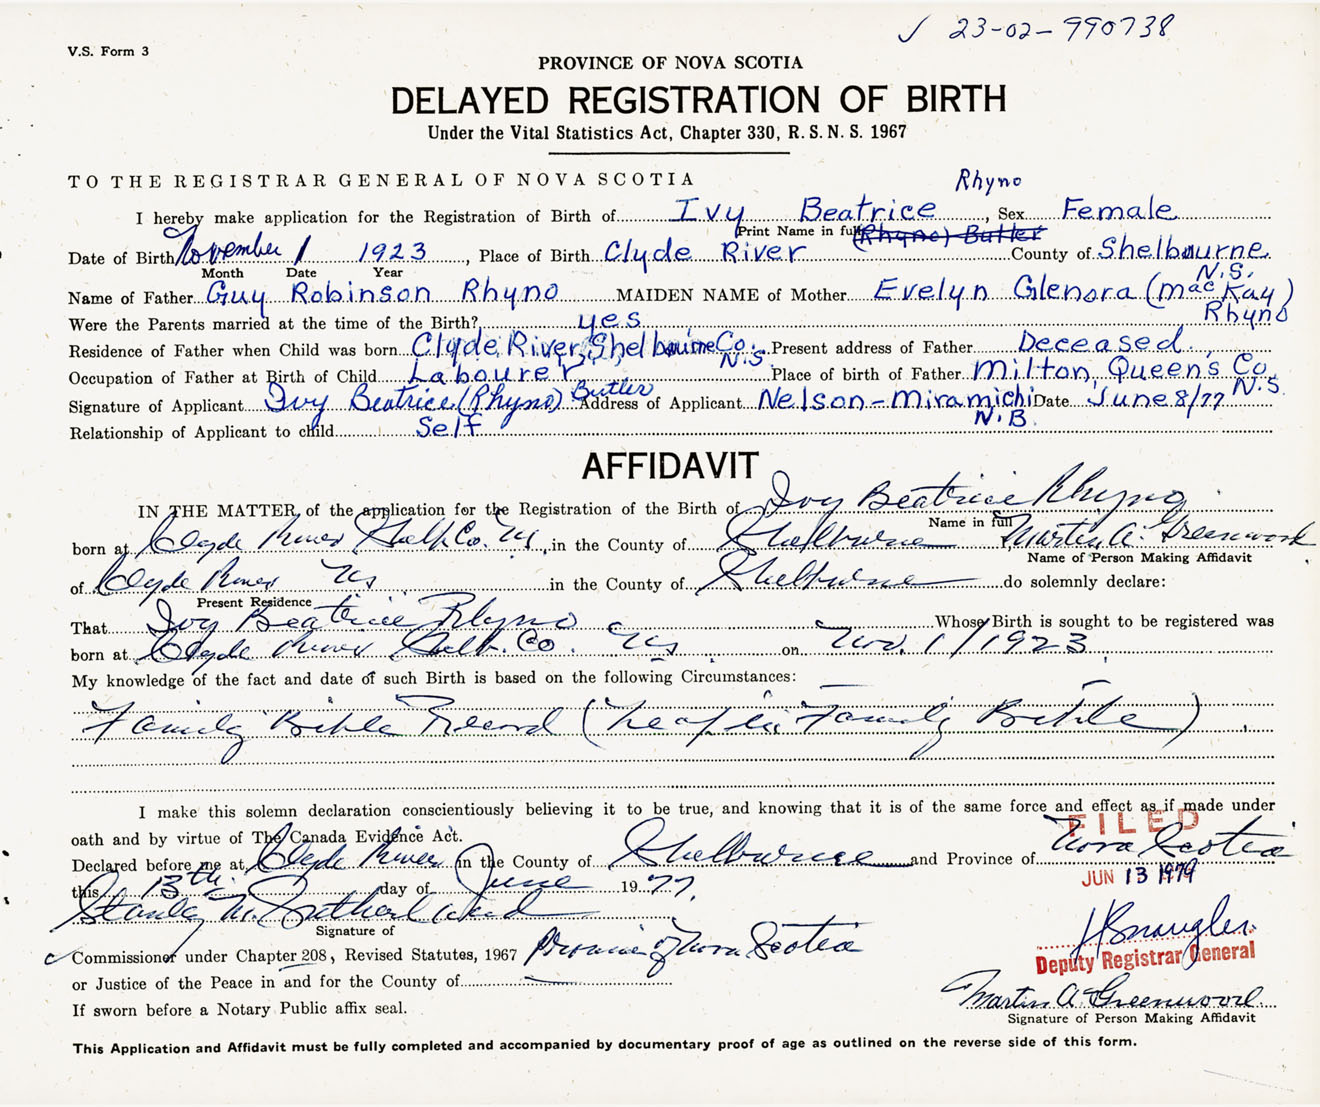 ✓ 23-02-990738
V.S. Form 3
PROVINCE OF NOVA SCOTIA
DELAYED REGISTRATION OF BIRTH
Under the Vital Statistics Act, Chapter 330, R.S.N.S. 1967
TO THE REGISTRAR GENERAL OF NOVA SCOTIA
Rhyno
I hereby make application for the Registration of Birth of Ivy Beatrice, Sex Female
Print Name in full (Rhyno) Butler
Date of Birth November 1 1923, Place of Birth Clyde River County of Shelbourne
Month Date Year N.S.
Name of Father Guy Robinson Rhyno MAIDEN NAME of Mother Evelyn Glenora (MacKay)
Rhyno
Were the Parents married at the time of the Birth? yes
Residence of Father when Child was born Clyde River, Shelbourne Co. N.S. Present address of Father Deceased.
Occupation of Father at Birth of Child Labourer Place of birth of Father Milton, Queens Co. N.S.
Signature of Applicant Ivy Beatrice (Rhyno) Butler Address of Applicant Nelson-Miramichi N.B. Date June 8/77
Relationship of Applicant to child Self
AFFIDAVIT
IN THE MATTER of the application for the Registration of the Birth of Ivy Beatrice Rhyno
Name in full
born at Clyde River Shelb. Co. NS, in the County of Shelburne Martin A. Greenwood
Name of Person Making Affidavit
of Clyde River NS in the County of Shelburne do solemnly declare:
Present Residence
That Ivy Beatrice Rhyno Whose Birth is sought to be registered was
born at Clyde River Shelb. Co. NS on Nov. 1/1923
My knowledge of the fact and date of such Birth is based on the following Circumstances:
Family Bible Record (Leaf in Family Bible)
I make this solemn declaration conscientiously believing it to be true, and knowing that it is of the same force and effect as if made under
oath and by virtue of The Canada Evidence Act.
FILED
Declared before me at Clyde River in the County of Shelburne and Province of Nova Scotia
this 13th day of June 1977.
JUN 13 1979
Stanley M. Sutherland
Signature of
Commissioner under Chapter 208, Revised Statutes, 1967 Province of Nova Scotia
Deputy Registrar General
or Justice of the Peace in and for the County of
Martin A. Greenwood
If sworn before a Notary Public affix seal.
Signature of Person Making Affidavit
This Application and Affidavit must be fully completed and accompanied by documentary proof of age as outlined on the reverse side of this form.